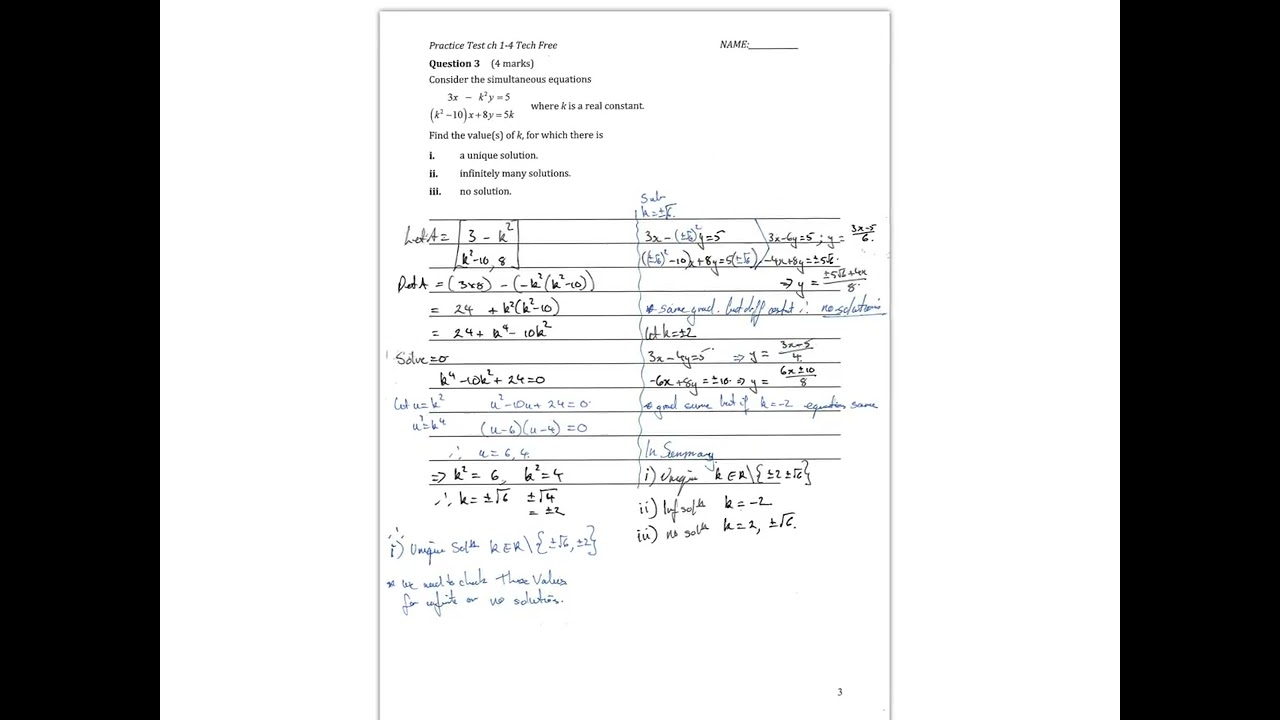 Practice Test ch 1-4 Tech Free NAME:__________
Question 3 (4 marks)
Consider the simultaneous equations
3x − k²y = 5
(k² −10)x + 8y = 5k where k is a real constant.
Find the value(s) of k, for which there is
i. a unique solution.
ii. infinitely many solutions.
iii. no solution.
Let A = [3 − k²
k²−10, 8]
Det A = (3x8) − (−k²(k²−10))
= 24 + k²(k²−10)
= 24 + k⁴ − 10k²
Solve = 0
k⁴ − 10k² + 24 = 0
Let u = k² u² − 10u + 24 = 0
u² = k⁴ (u−6)(u−4) = 0
∴ u = 6, 4.
⇒ k² = 6, k² = 4
∴ k = ±√6 ±√4
= ±2
i) Unique Solth k∈R\{±√6, ±2}
* we need to check those values
for infinite or no solutions.
Sub
k = ±√6.
3x − (±√6)²y = 5 3x−6y=5 ; y = (3x−5)/6.
((±√6)² −10)x + 8y = 5(±√6) −4x+8y = ±5√6.
⇒ y = (±5√6+4x)/8.
* same grad. but diff constat ∴ no solutions
Let k = ±2
3x − 4y = 5 ⇒ y = (3x−5)/4.
−6x + 8y = ±10 ⇒ y = (6x±10)/8
* grad same but if k = −2 equations same
In Summary
i) Unique k∈R\{±2 ±√6}
ii) Inf solth k = −2
iii) no solth k = 2, ±√6.
3